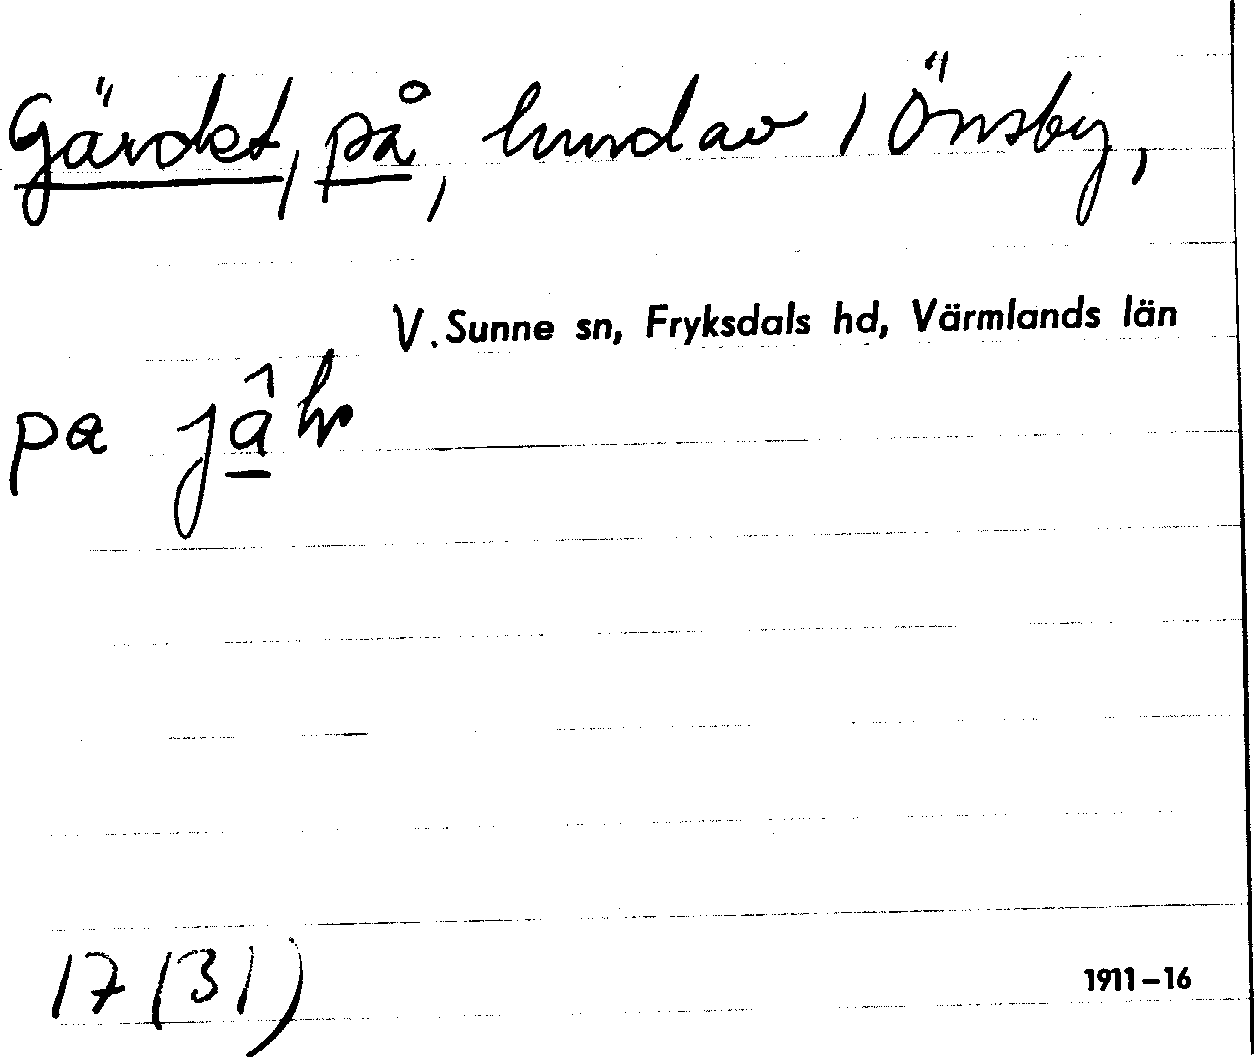 Gärdet, på, hmd av i Önsby,
V. Sunne sn, Fryksdals hd, Värmlands län
pa
17 (31)
1911–16